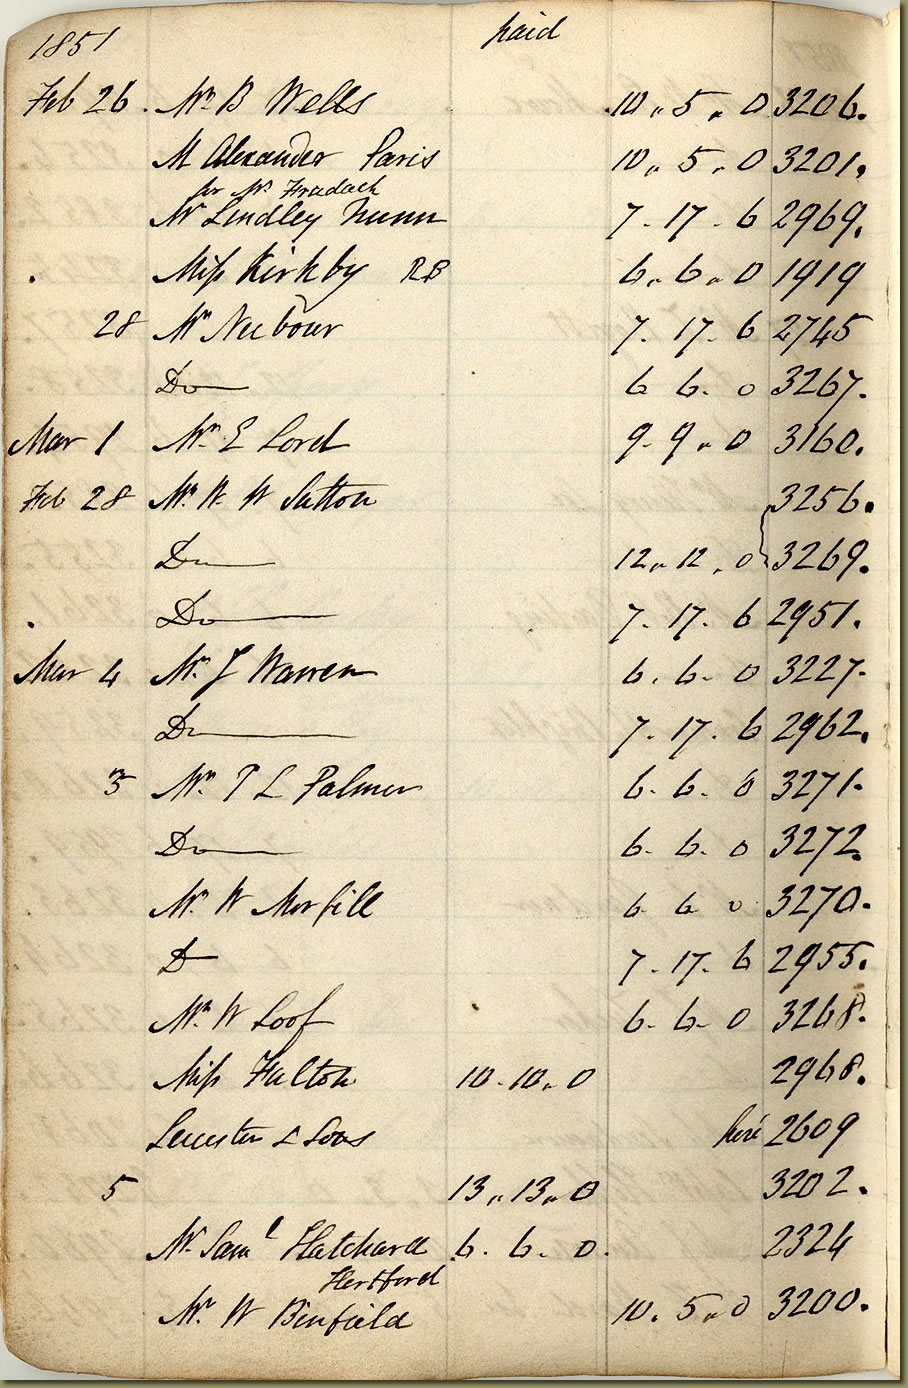 1851 paid
Feb 26. Mr. B Wells 10. 5. 0 3206.
M Alexander Paris 10. 5. 0 3201.
for Mr.
Mr Lindley Nunn 7. 17. 6 2969.
Miss Kirkby RB 6. 6. 0 1919
28 Mr Neubour 7. 17. 6 2745
Do 6 6. 0 3267.
Mar 1 Mr. E Lord 9. 9. 0 3160.
Feb 28 Mr. W. W Sutton 3256.
Do 12. 12. 0 3269.
Do 7. 17. 6 2951.
Mar 4 Mr. J Warren 6. 6. 0 3227.
Do 7. 17. 6 2962.
3 Mr. T L Palmer 6. 6. 0 3271.
Do 6. 6. 0 3272.
Mr. W Morfill 6 6 0 3270.
D 7. 17. 6 2955.
Mr. W Loof 6. 6. 0 3268.
Miss Fulton 10. 10. 0 2968.
Leicester & Sons hire 2609
5 13. 13. 0 3202.
Mr. Saml Hatchard 6. 6. 0. 2324
Hertford
Mr. W Binfield 10. 5. 0 3200.